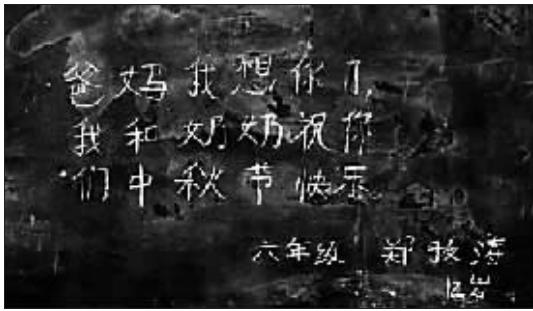 爸妈我想你了,
我和奶奶祝你
们中秋节快乐
六年级 郑
12岁